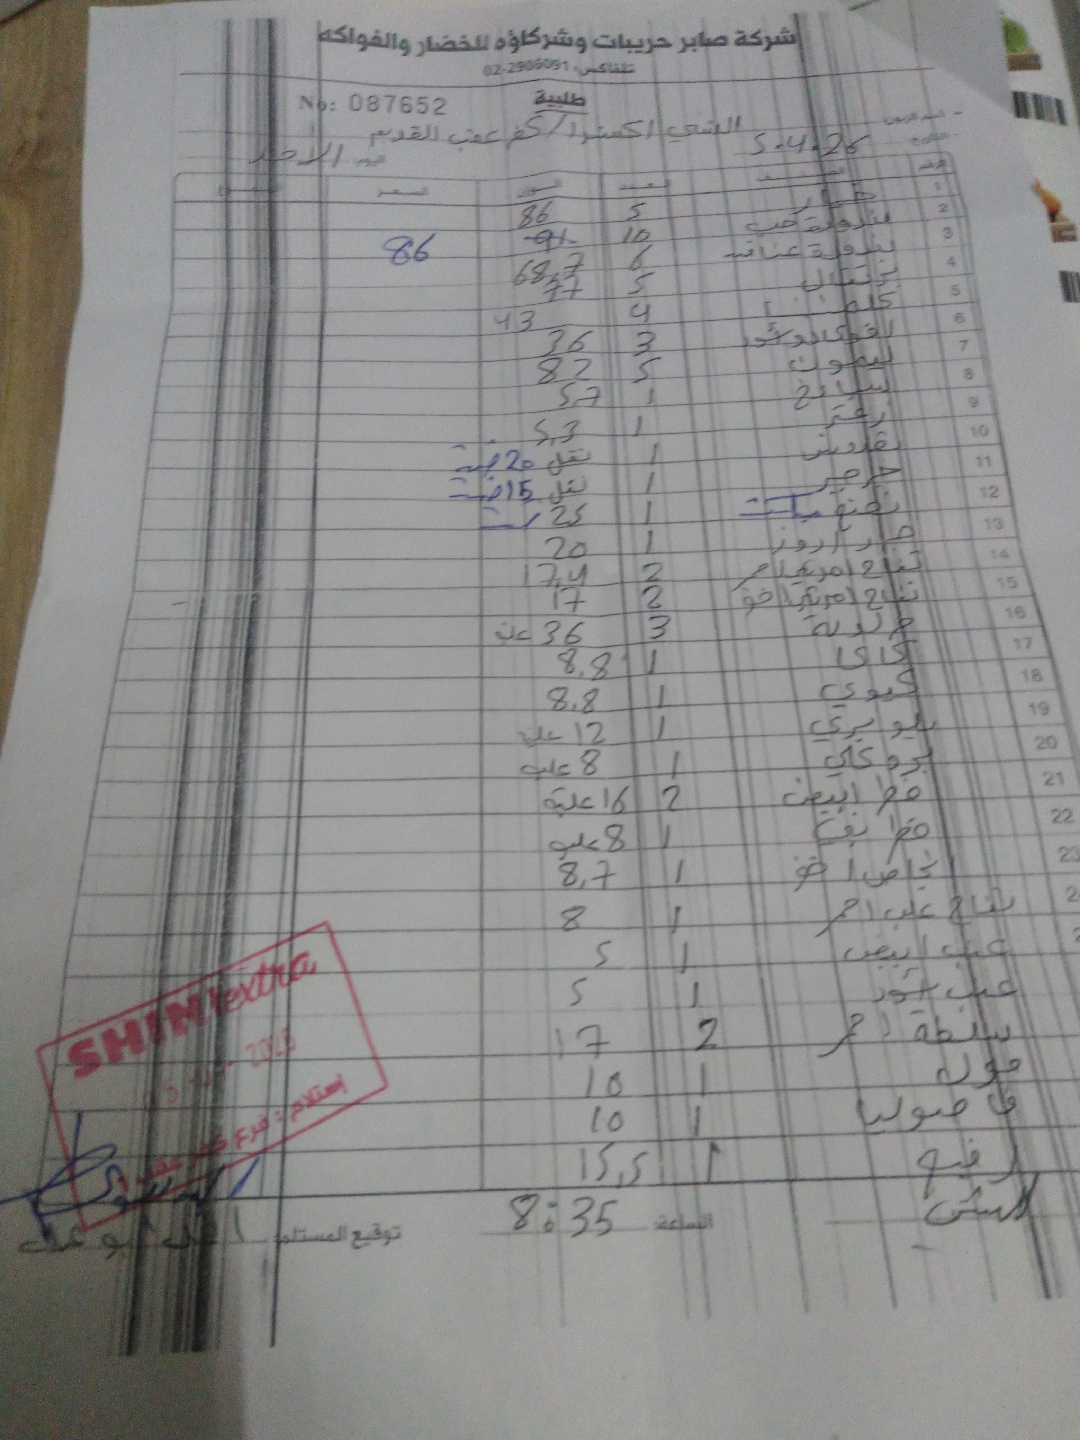 شركة صابر حريبات وشركاؤه للخضار والفواكه
تلفاكس: 2906091-02
طلبية
No: 087652
الشني اكسترا / كفر عقب القديم
5.4.26
اليوم الاحد
الرقم الصنف العدد الوزن السعر
1 خيار 5 86
2 بندورة حب 10 91 86
3 بندورة عناقيد 6 68,7
4 برتقال 5 77
5 4 43
6 3 36
7 ليمون 5 82
8 سبانخ 1 5,7
9 زعتر 1 5,3
10 بقدونس 1 نقل 20
11 جرجير 1 نقل 15
12 نعنع 1 25
13 1 20
14 تفاح امريكي احمر 2 17,4
15 تفاح امريكي اخضر 2 17
16 3 36 علبة
17 كاكا 1 8,8
18 كيوي 1 8,8
19 بلو بيري 1 12 علبة
20 بروكلي 1 8 علبة
21 فطر ابيض 2 16 علبة
22 فطر بني 1 8 علبة
23 نجاص اخضر 1 8,7
تفاح علب احمر 1 8
عنب ابيض 1 5
عنب أسود 1 5
احمر 2 17
فول 1 10
فاصوليا 1 10
1 15,5
الساعة 8:35
توقيع المستلم
SHINI extra
2026
إستلام : فرع كفر عقب